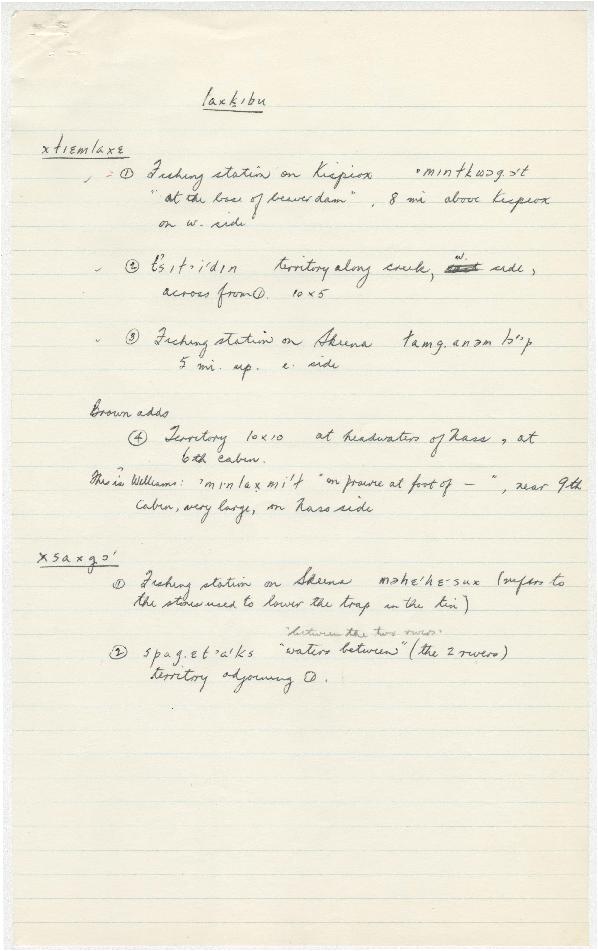 laxḵibu
xtiɛmlaxɛ
① Fishing station on Kispiox ʼmıntkwɔgɔ't
"at the base of beaver dam", 8 mi above Kispiox
on w. side
② t'sıt·i'dın territory along creek, w. side,
across from ①. 10 x 5
③ Fishing station on Skeena
5 mi. up. e. side
Brown adds
④ Territory 10x10 at headwaters of Nass, at
6th cabin.
This is Williams: ʼmınlaxmi't "on prairie at foot of — ", near 9th
Cabin, very large, on Nass side
xsaxgɔ'
① Fishing station on Skeena mɔhɛ'hɛ·sux (refers to
the stones used to lower the trap in the
"between the two rivers"
② spag.ɛtʼa'ks "waters between" (the 2 rivers)
territory adjoining ①.